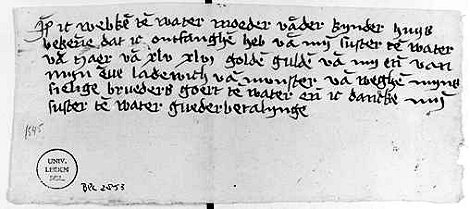 Jc webke te water moeder va der kynder huys
bekene dat ic ontfanghe heb va mÿ suster te water
va haer va xlv xlvi golde gulde va mÿ en van
mijn
ladewich va munster va weghe mijns
zielige brueders goert te water en ic dancke mÿ
suster te water guederbetalynge
1545
UNIV.
LEIDEN
BIBL.
BPL 2553